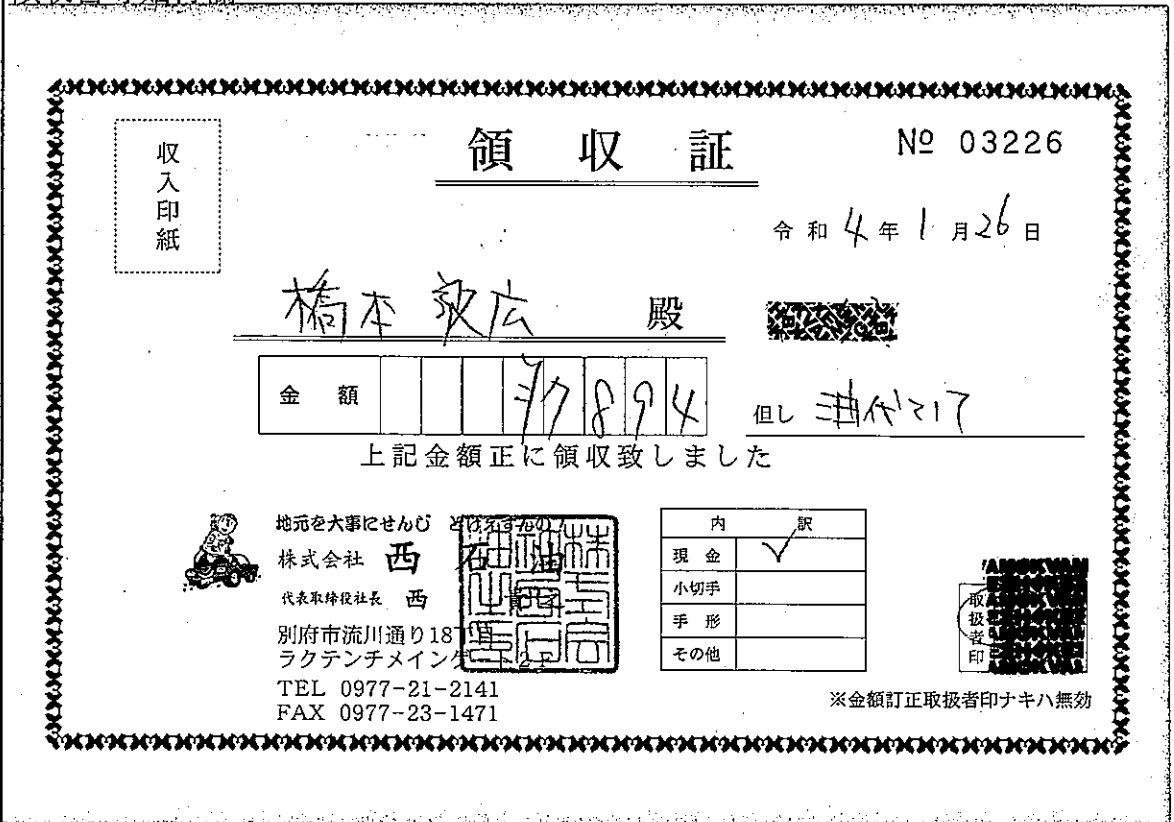 収入印紙
領収証
№ 03226
令和4年1月26日
橋本 敬広 殿
金額 ¥7894
但し 油代として
上記金額正に領収致しました
地元を大事にせんじ
株式会社 西石油
代表取締役社長 西
別府市流川通り18
ラクテンチメインゲート2F
TEL 0977-21-2141
FAX 0977-23-1471
内訳
現金 ✓
小切手
手形
その他
取扱者印
※金額訂正取扱者印ナキハ無効